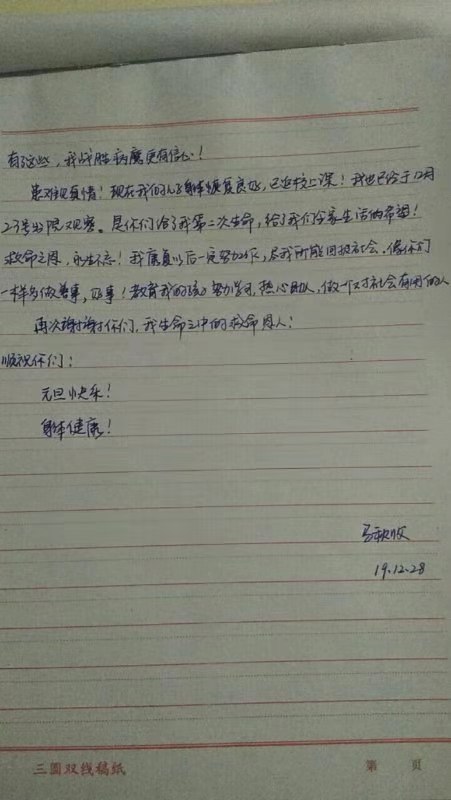 有这些，我战胜病魔更有信心！
患难见真情！现在我的儿子身体恢复良好，已返校上课！我也已于12月
23号出院观察。是你们给了我第二次生命，给了我们全家生活的希望！
救命之恩，永生不忘！我康复以后一定努力工作，尽我所能回报社会，像你们
一样多做善事，好事！教育我的孩子努力学习，热心助人，做一个对社会有用的人
再次谢谢你们，我生命之中的救命恩人！
顺祝你们：
元旦快乐！
身体健康！
马秋收
19.12.28
三圆双线稿纸
第 页